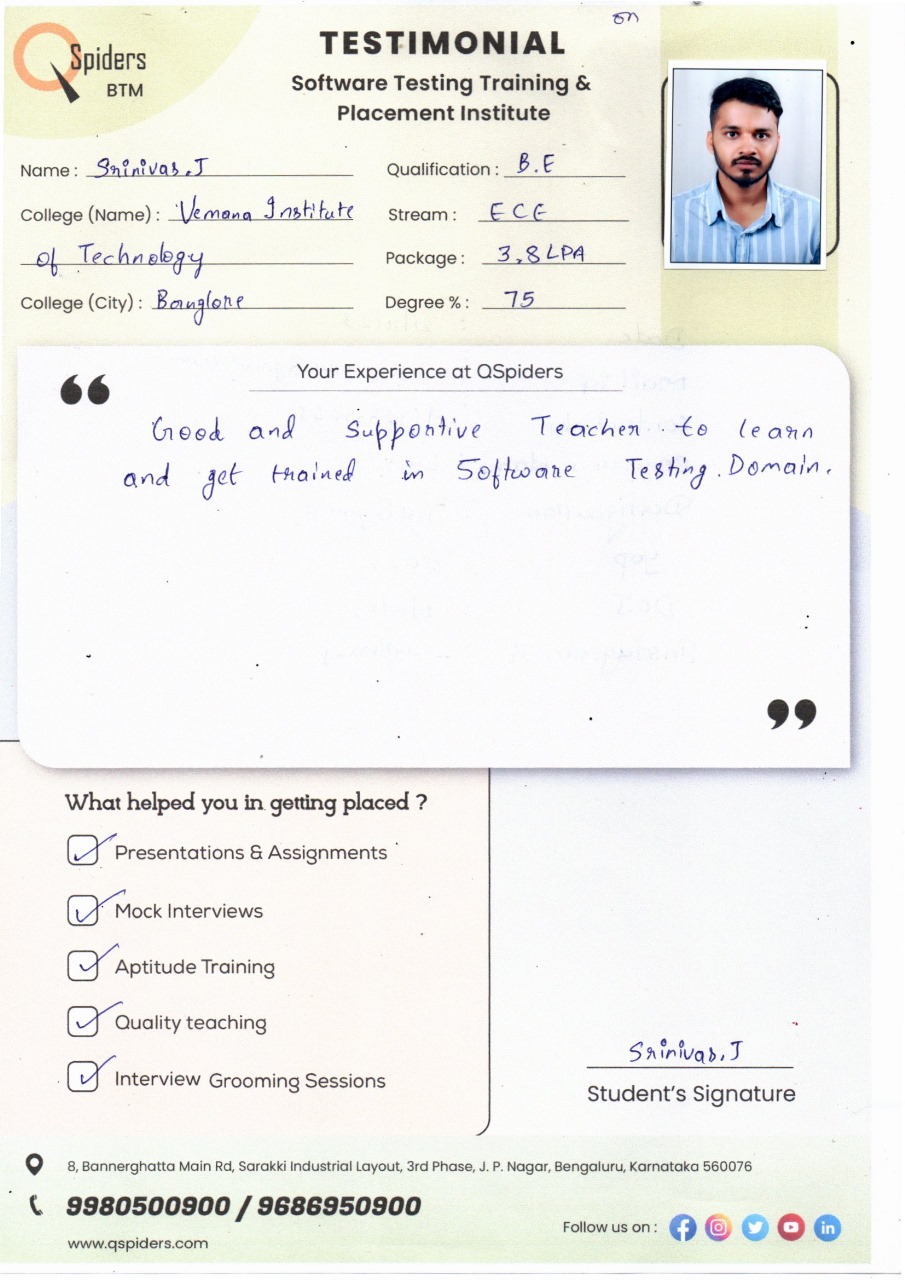 on
QSpiders
BTM
TESTIMONIAL
Software Testing Training &
Placement Institute
Name : Srinivas.J
Qualification : B.E
College (Name) : Vemana Institute
of Technology
Stream : ECE
Package : 3.8 LPA
College (City) : Banglore
Degree % : 75
Your Experience at QSpiders
Good and Supportive Teacher to learn
and get trained in Software Testing Domain.
What helped you in getting placed ?
Presentations & Assignments
Mock Interviews
Aptitude Training
Quality teaching
Interview Grooming Sessions
Srinivas.J
Student's Signature
8, Bannerghatta Main Rd, Sarakki Industrial Layout, 3rd Phase, J. P. Nagar, Bengaluru, Karnataka 560076
9980500900 / 9686950900
Follow us on :
www.qspiders.com